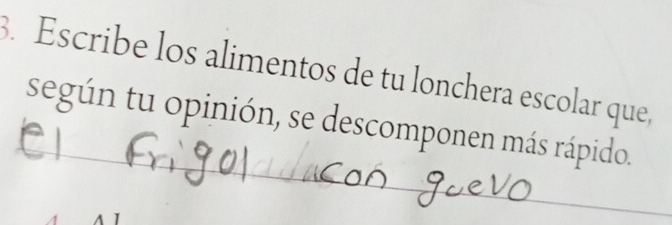 3. Escribe los alimentos de tu lonchera escolar que,
según tu opinión, se descomponen más rápido.
el frigol con guevo